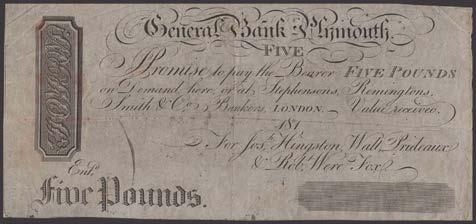 General Bank Plymouth.
FIVE
I Promise to pay the Bearer FIVE POUNDS
on Demand, here, or at Stephensons, Remingtons,
Smith & Co. Bankers, LONDON. Value received.
181
For Jos. Hingston, Walt. Prideaux
& Rob. Were Fox
Ent.
Five Pounds.